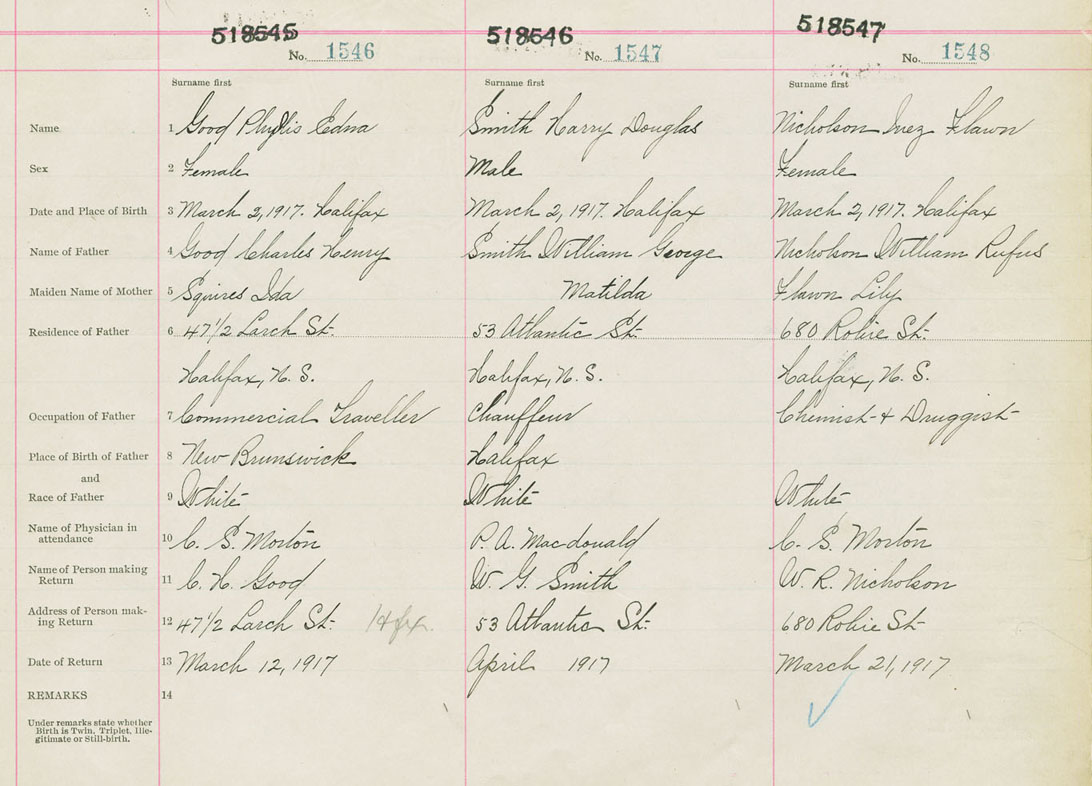 518545 518546 518547
No. 1546 No. 1547 No. 1548
Surname first Surname first Surname first
Name 1 Good Phyllis Edna Smith Harry Douglas Nicholson Inez Flawn
Sex 2 Female Male Female
Date and Place of Birth 3 March 2, 1917. Halifax March 2, 1917. Halifax March 2, 1917. Halifax
Name of Father 4 Good Charles Henry Smith William George Nicholson William Rufus
Maiden Name of Mother 5 Squires Ida Matilda Flawn Lily
Residence of Father 6 47 1/2 Larch St. 53 Atlantic St. 680 Robie St.
Halifax, N. S. Halifax, N. S. Halifax, N. S.
Occupation of Father 7 Commercial Traveller Chauffeur Chemist & Druggist
Place of Birth of Father 8 New Brunswick Halifax
and
Race of Father 9 White White White
Name of Physician in
attendance 10 C. S. Morton P. A. Macdonald C. S. Morton
Name of Person making
Return 11 C. H. Good W. G. Smith W. R. Nicholson
Address of Person mak-
ing Return 12 47 1/2 Larch St. Hfx. 53 Atlantic St. 680 Robie St.
Date of Return 13 March 12, 1917 April 1917 March 21, 1917
REMARKS 14
Under remarks state whether
Birth is Twin, Triplet, Ille-
gitimate or Still-birth.